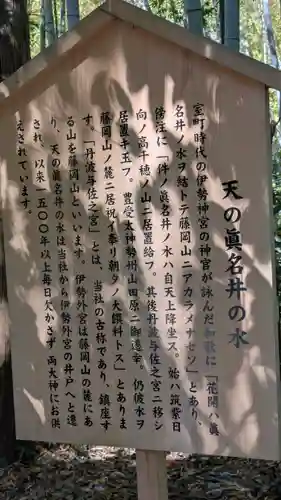 天の眞名井の水
室町時代の伊勢神宮の神官が詠んだ御歌に「花開ハ眞
名井ノ水ヲ結トテ藤岡山ニアカラメナセソ」とあり、
傍注に「件ノ眞名井ノ水ハ自天上降坐ス。始ハ筑紫日
向ノ高千穂ノ山ニ居置給フ。其後丹波与佐之宮ニ移シ
居置玉フ。豊受太神勢州山田原ニ御遷幸。仍彼水ヲ
藤岡山ノ麓ニ居祝イ奉リ朝夕ノ大饌料トス」とありま
す。「丹波与佐之宮」とは、当社の古称であり、鎮座す
る山を藤岡山といいます。伊勢外宮は藤岡山の麓にあ
り、天の眞名井の水は当社から伊勢外宮の井戸へと遷
され、以来一五〇〇年以上毎日欠かさず両大神にお供
えされています。